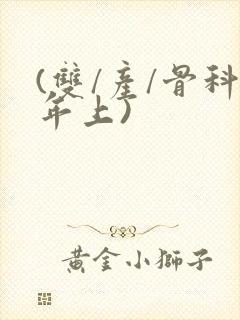 (雙/產/骨科
年上)
黃金小獅子